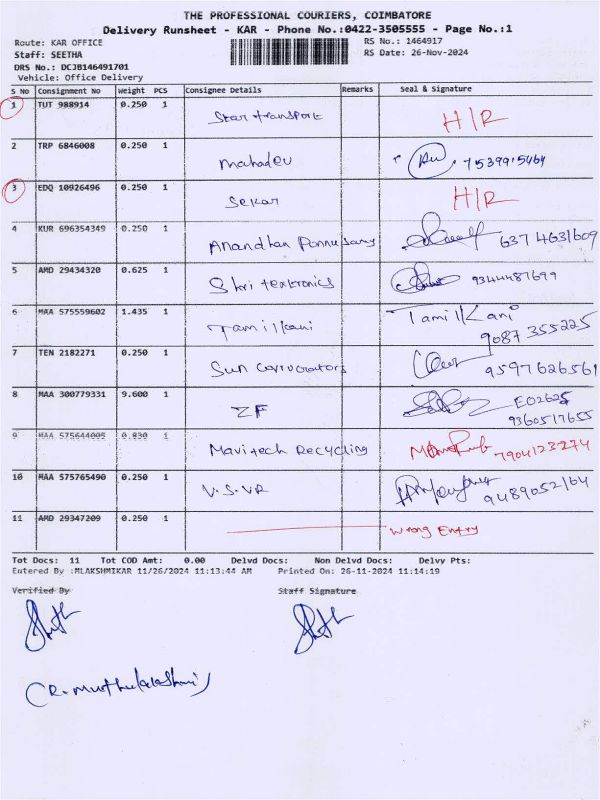 THE PROFESSIONAL COURIERS, COIMBATORE
Delivery Runsheet - KAR - Phone No.:0422-3505555 - Page No.:1
Route: KAR OFFICE RS No.: 1464917
Staff: SEETHA RS Date: 26-Nov-2024
DRS No.: DCJB146491701
Vehicle: Office Delivery
S No Consignment No Weight PCS Consignee Details Remarks Seal & Signature
1 TUT 988914 0.250 1 Star transport H/R
2 TRP 6846008 0.250 1 mahadev 7539915464
3 EDQ 10926496 0.250 1 Sekar H/R
4 KUR 696354349 0.250 1 Anandhan Ponnusamy 6374631609
5 AMD 29434320 0.625 1 Shri textronics 9344487699
6 MAA 575559602 1.435 1 Tamilkani TamilKani 9087 355225
7 TEN 2182271 0.250 1 Sun 9597626561
8 MAA 300779331 9.600 1 ZF E02625
9360517655
9 MAA 575644005 0.830 1 Mavitech Recycling 7904123274
10 MAA 575765490 0.250 1 V.S.VR 9489052164
11 AMD 29347209 0.250 1 Wrong Entry
Tot Docs: 11 Tot COD Amt: 0.00 Delvd Docs: Non Delvd Docs: Delvy Pts:
Entered By :MLAKSHMIKAR 11/26/2024 11:13:44 AM Printed On: 26-11-2024 11:14:19
Verified By Staff Signature
(R. Muthulakshmi)